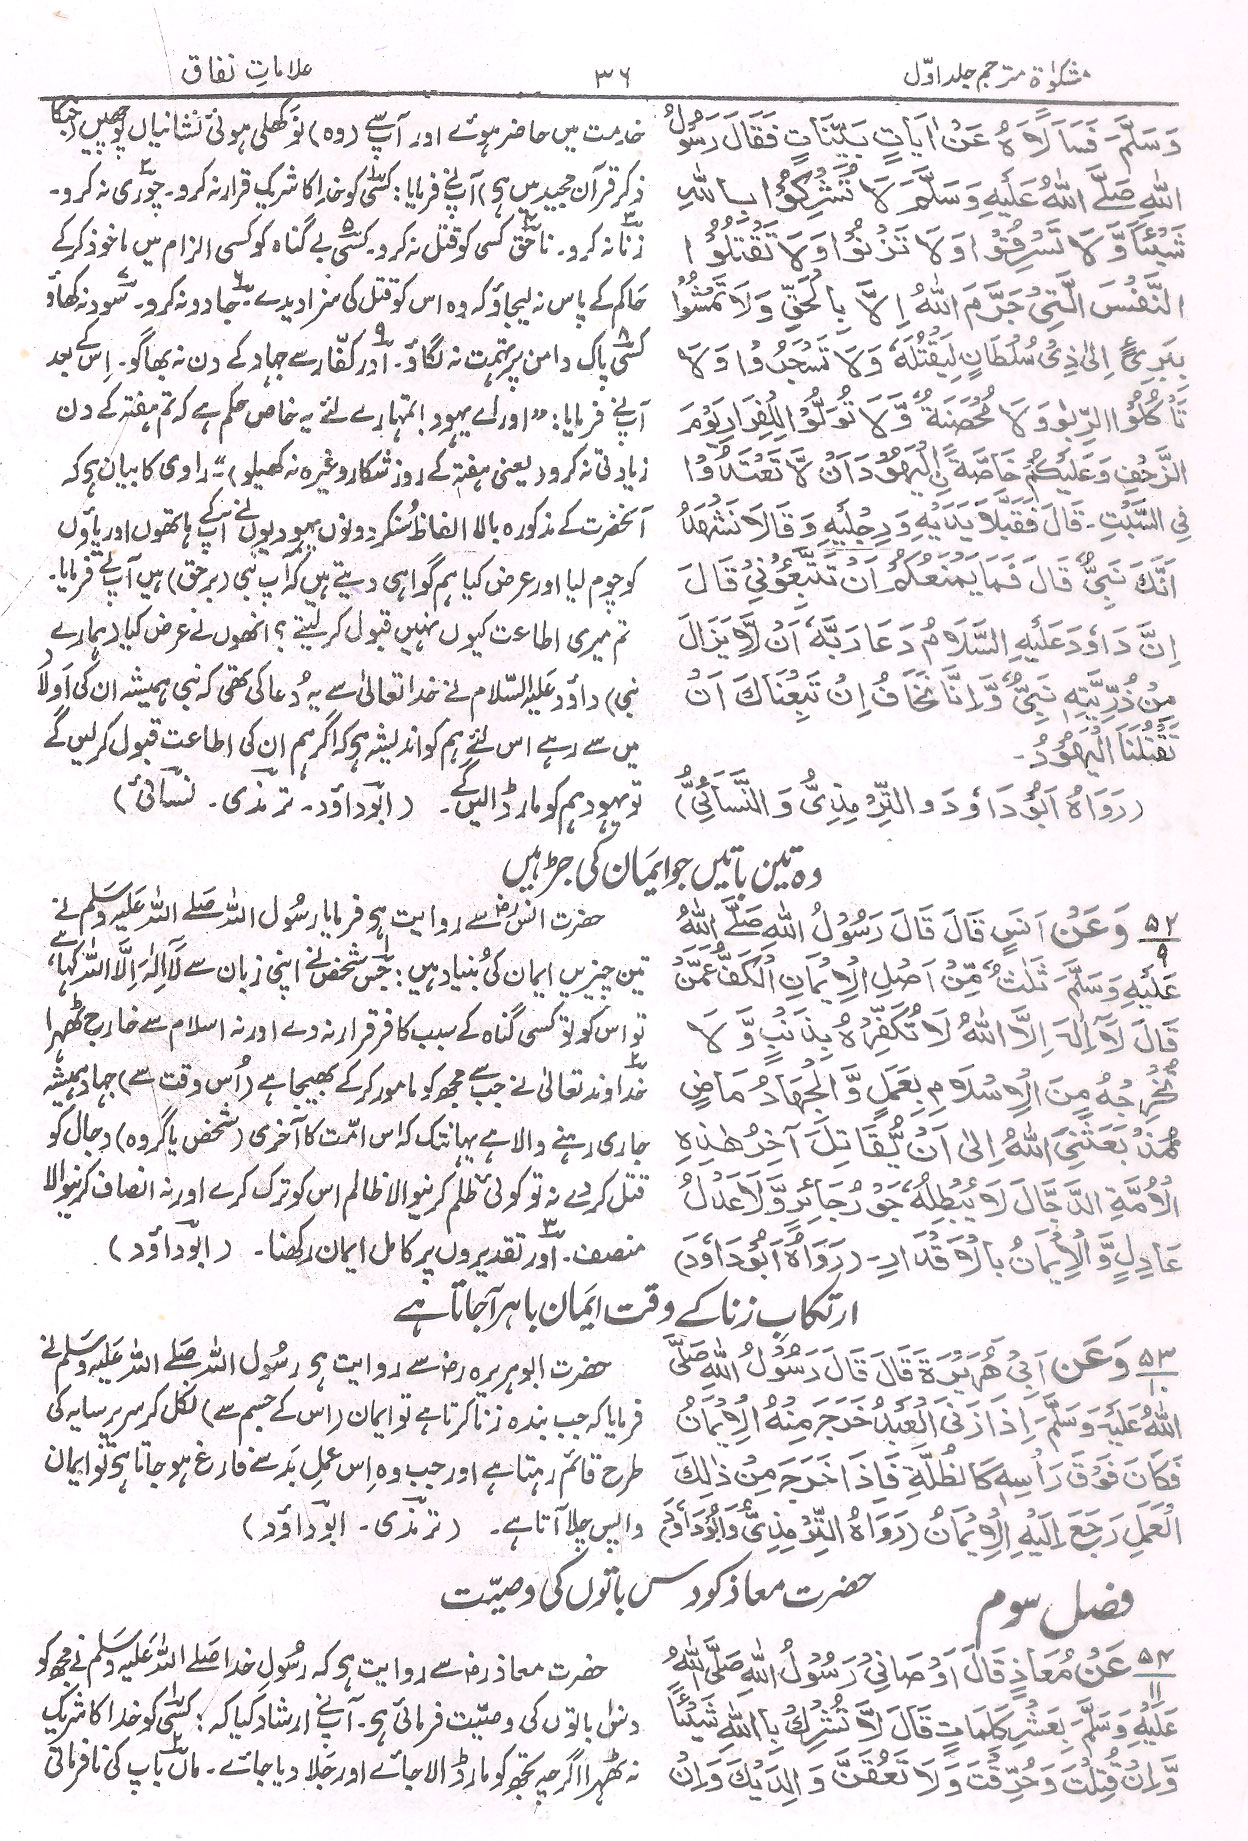 مشکوٰۃ مترجم جلد اوّل
۳۶
علاماتِ نفاق
وَسَلَّمَ فَسَاَلَاہُ عَنْ اٰیَاتٍ بَیِّنَاتٍ فَقَالَ رَسُوْلُ
اللہِ صَلَّے اللہُ عَلَیْہِ وَسَلَّمَ لَا تُشْرِکُوْا بِاللہِ
شَیْئًا وَّلَا تَسْرِقُوْا وَلَا تَزْنُوْا وَلَا تَقْتُلُوْا
النَّفْسَ الَّتِیْ حَرَّمَ اللہُ اِلَّا بِالْحَقِّ وَلَا تَمْشُوْا
بِبَرِیْءٍ اِلٰی ذِیْ سُلْطَانٍ لِیَقْتُلَہٗ وَلَا تَسْحَرُوْا وَلَا
تَاْکُلُوا الرِّبٰو وَلَا مُحْصَنَۃً وَّلَا تُوَلُّوْا لِلْفِرَارِ یَوْمَ
الزَّحْفِ وَعَلَیْکُمْ خَاصَّۃً اَلْیَھُوْدَ اَنْ لَّا تَعْتَدُوْا
فِی السَّبْتِ۔ قَالَ فَقَبَّلَا یَدَیْہِ وَرِجْلَیْہِ وَقَالَا نَشْھَدُ
اَنَّکَ نَبِیٌّ قَالَ فَمَا یَمْنَعُکُمْ اَنْ تَتَّبِعُوْنِیْ قَالَا
اِنَّ دَاوٗدَ عَلَیْہِ السَّلَامُ دَعَا رَبَّہٗ اَنْ لَّا یَزَالَ
مِنْ ذُرِّیَّتِہٖ نَبِیٌّ وَّاِنَّا نَخَافُ اِنْ تَبِعْنَاکَ اَنْ
تَقْتُلَنَا الْیَھُوْدُ۔
(رَوَاہُ اَبُوْدَاوٗدَ وَالتِّرْمِذِیُّ وَالنَّسَائِیُّ)
خدمت میں حاضر ہوئے اور آپ سے (وہ) نو کھلی ہوئی نشانیاں پوچھیں (جنکا
ذکر قرآن مجید میں ہی) آپ نے فرمایا: کسی کو خدا کا شریک قرار نہ کرو۔ چوری نہ کرو۔
زنا نہ کرو۔ ناحق کسی کو قتل نہ کرو۔ کسی بے گناہ کو کسی الزام میں ماخوذ کر کے
حاکم کے پاس نہ لیجاؤ کہ وہ اس کو قتل کی سزا دیدے۔ جادو نہ کرو۔ سود نہ کھاؤ
کسی پاک دامن پر تہمت نہ لگاؤ۔ اور کفّار سے جہاد کے دن نہ بھاگو۔ اِس کے بعد
آپ نے فرمایا: ”اور اے یہود! تمہارے لئے یہ خاص حکم ہے کہ تم ہفتہ کے دن
زیادتی نہ کرو (یعنی ہفتہ کے روز شکار وغیرہ نہ کھیلو)“۔ راوی کا بیان ہی کہ
آنحضرت کے مذکورہ بالا الفاظ سُنکر دونوں یہودیوں نے آپ کے ہاتھوں اور پاؤں
کو چوم لیا اور عرض کیا ہم گواہی دیتے ہیں کہ آپ نبی (برحق) ہیں آپ نے فرمایا۔
تم میری اطاعت کیوں نہیں قبول کر لیتے؟ انھوں نے عرض کیا (ہمارے
نبی) داؤد علیہ السّلام نے خدا تعالیٰ سے یہ دُعا کی تھی کہ نبی ہمیشہ ان کی اولاد
میں سے رہے اس لئے ہم کو اندیشہ ہی کہ اگر ہم ان کی اطاعت قبول کر لیں گے
تو یہود ہم کو مار ڈالیں گے۔ (ابوداؤد۔ ترمذی۔ نسائی)
وہ تین باتیں جو ایمان کی جڑ ہیں
۵۲
۹
وَعَنْ اَنَسٍ قَالَ قَالَ رَسُوْلُ اللہِ صَلَّے اللہُ
عَلَیْہِ وَسَلَّمَ ثَلٰثٌ مِّنْ اَصْلِ الْاِیْمَانِ اَلْکَفُّ عَمَّنْ
قَالَ لَآ اِلٰہَ اِلَّا اللہُ لَا تُکَفِّرْہُ بِذَنْبٍ وَّلَا
تُخْرِجْہُ مِنَ الْاِسْلَامِ بِعَمَلٍ وَّالْجِھَادُ مَاضٍ
مُّنْذُ بَعَثَنِیَ اللہُ اِلٰی اَنْ یُّقَاتِلَ آخِرُ ھٰذِہِ
الْاُمَّۃِ الدَّجَّالَ لَا یُبْطِلُہٗ جَوْرُ جَائِرٍ وَّلَا عَدْلُ
عَادِلٍ وَّالْاِیْمَانُ بِالْاَقْدَارِ۔ (رَوَاہُ اَبُوْدَاوٗدَ)
حضرت انس رض سے روایت ہی فرمایا رسُول اللہ صَلے اللہ عَلیہ وسَلم نے
تین چیزیں ایمان کی بُنیاد ہیں: جس شخص نے اپنی زبان سے لَآ اِلٰہَ اِلَّا اللہُ کہا ہے
تو اس کو تو کسی گناہ کے سبب کافر قرار نہ دے اور نہ اسلام سے خارج ٹھہرا
خداوند تعالیٰ نے جب سے مجھ کو مامور کر کے بھیجا ہے (اُس وقت سے) جہاد ہمیشہ
جاری رہنے والا ہے یہانتک کہ اس امّت کا آخری (شخص یا گروہ) دجال کو
قتل کر دے نہ تو کوئی ظلم کرنیوالا ظالم اس کو ترک کرے اور نہ انصاف کرنیوالا
منصف۔ اور تقدیروں پر کامل ایمان رکھنا۔ (ابوداؤد)
ارتکابِ زنا کے وقت ایمان باہر آجاتا ہے
۵۳
۱۰
وَعَنْ اَبِیْ ھُرَیْرَۃَ قَالَ قَالَ رَسُوْلُ اللہِ صَلَّی
اللہُ عَلَیْہِ وَسَلَّمَ اِذَا زَنَی الْعَبْدُ خَرَجَ مِنْہُ الْاِیْمَانُ
فَکَانَ فَوْقَ رَاْسِہٖ کَالظُّلَّۃِ فَاِذَا خَرَجَ مِنْ ذٰلِکَ
الْعَمَلِ رَجَعَ اِلَیْہِ الْاِیْمَانُ (رَوَاہُ التِّرْمِذِیُّ وَاَبُوْدَاوٗدَ)
حضرت ابوہریرہ رض سے روایت ہی رسُول اللہ صَلے اللہ عَلیہ وسَلم نے
فرمایا کہ جب بندہ زنا کرتا ہے تو ایمان (اس کے جسم سے) نکل کر سر پر سایہ کی
طرح قائم رہتا ہے اور جب وہ اِس عملِ بَد سے فارغ ہو جاتا ہی تو ایمان
واپس چلا آتا ہے۔ (ترمذی۔ ابوداؤد)
حضرت معاذ کو دس باتوں کی وصیّت
فصل سوم
۵۴
۱۱
عَنْ مُعَاذٍ قَالَ اَوْصَانِیْ رَسُوْلُ اللہِ صَلَّی اللہُ
عَلَیْہِ وَسَلَّمَ بِعَشْرِ کَلِمَاتٍ قَالَ لَا تُشْرِکْ بِاللہِ شَیْئًا
وَّاِنْ قُتِلْتَ وَحُرِّقْتَ وَلَا تَعُقَّنَّ وَالِدَیْکَ وَاِنْ
حضرت معاذ رض سے روایت ہی کہ رسُولِ خدا صَلے اللہ عَلیہ وسَلم نے مجھ کو
دس باتوں کی وصیّت فرمائی ہی۔ آپ نے ارشاد کیا کہ: کسی کو خدا کا شریک
نہ ٹھہرا اگرچہ تجھ کو مار ڈالا جائے اور جَلا دیا جائے۔ ماں باپ کی نافرمانی